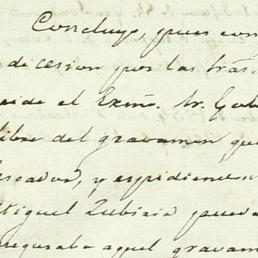 Concluyo, pues con
de cesion por las trás.
pide el Exmo. Sr. Gob
libre del gravamen que
y espidiene
Miguel Zubiria pueda
aseguraba aquel gravam